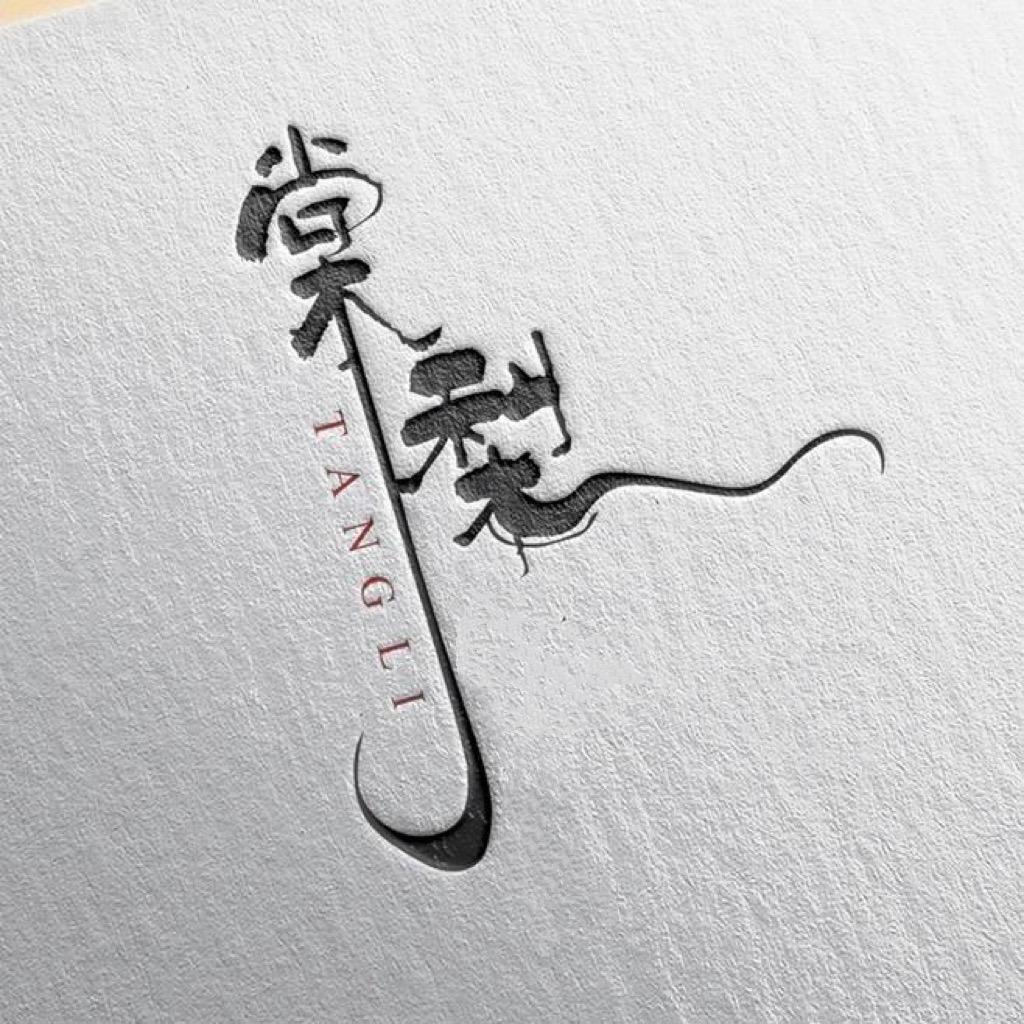 棠梨
TANGLI